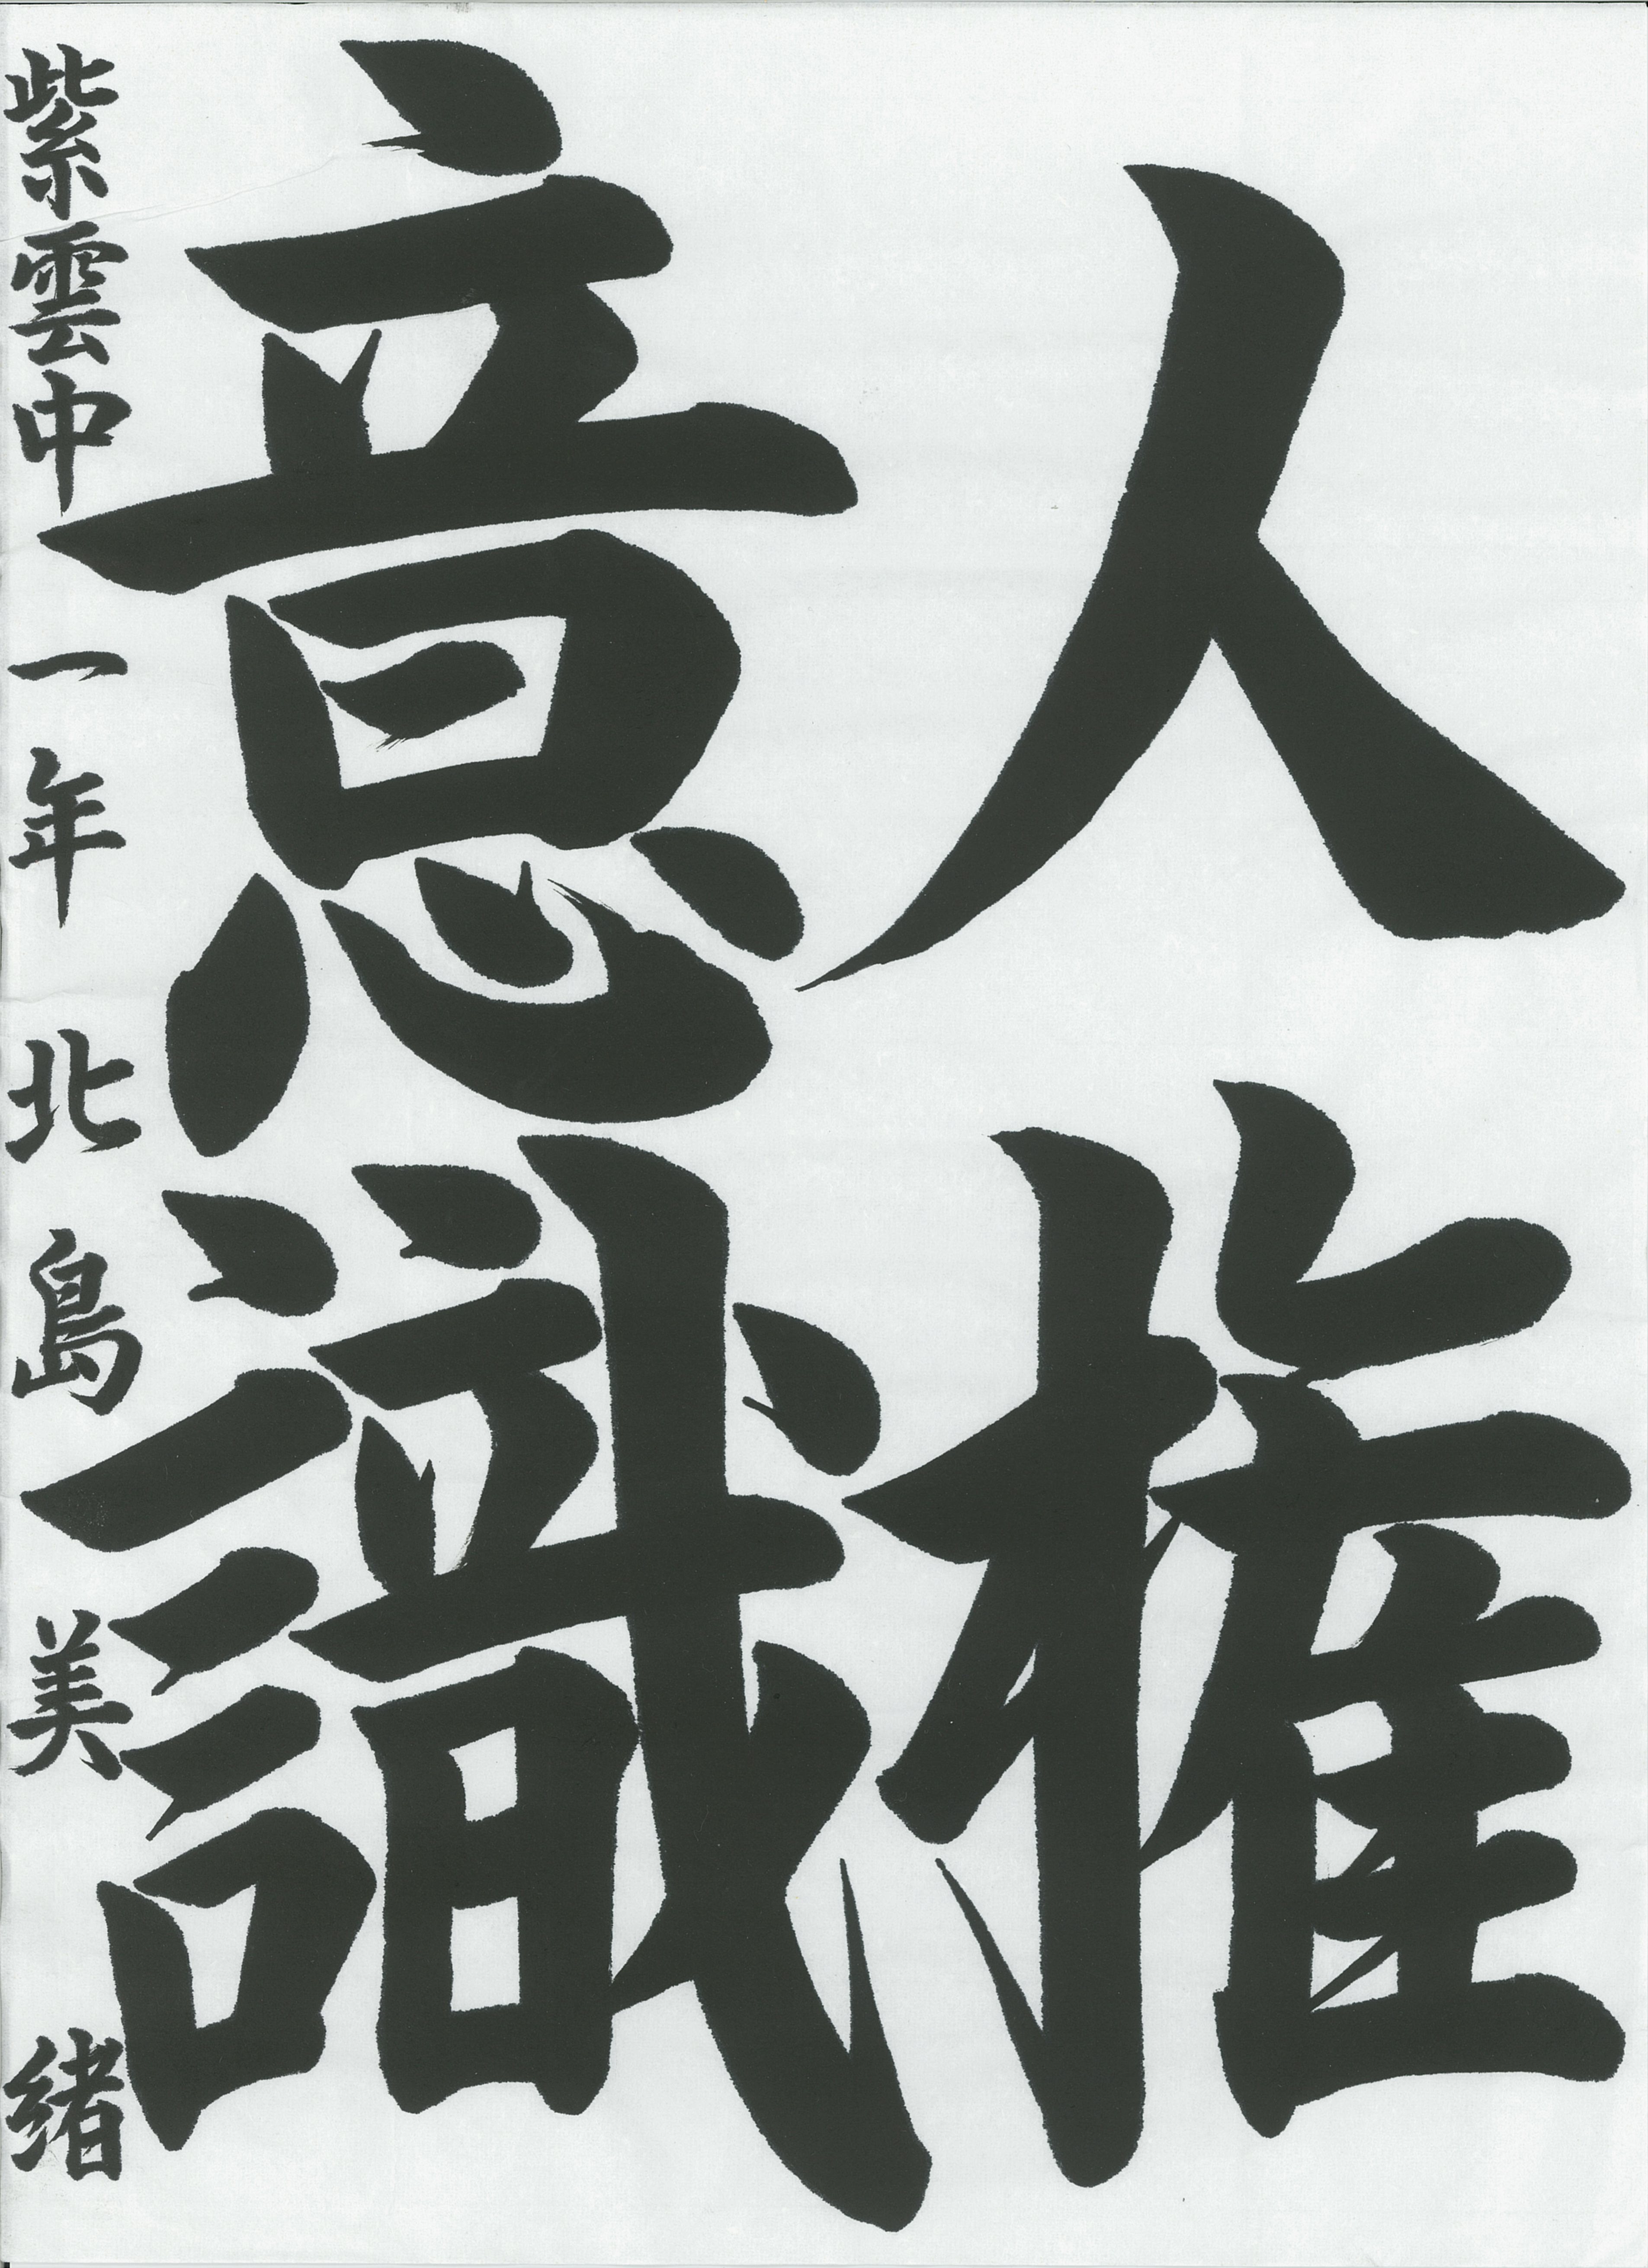 人権
意識
紫雲中 一年 北島美緒